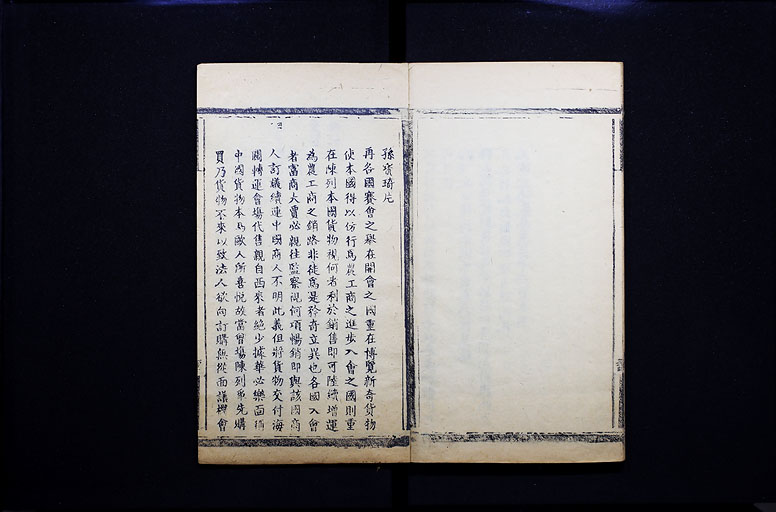 孫寶琦片
再各國賽會之舉在開會之國重在博覽新奇貨物
使本國得以仿行為農工商之進步入會之國則重
在陳列本國貨物視何者利於銷售即可陸續增運
為農工商之銷路非徒為是矜奇立異也各國入會
者富商大賈必親往監察視何項暢銷即與該國商
人訂議續運中國商人不明此義但將貨物交付海
關轉運會場代售親自西來者絕少據華必樂面稱
中國貨物本為歐人所喜悅故當會場陳列爭先購
買乃貨物不來以致法人欲向訂購無從面議機會